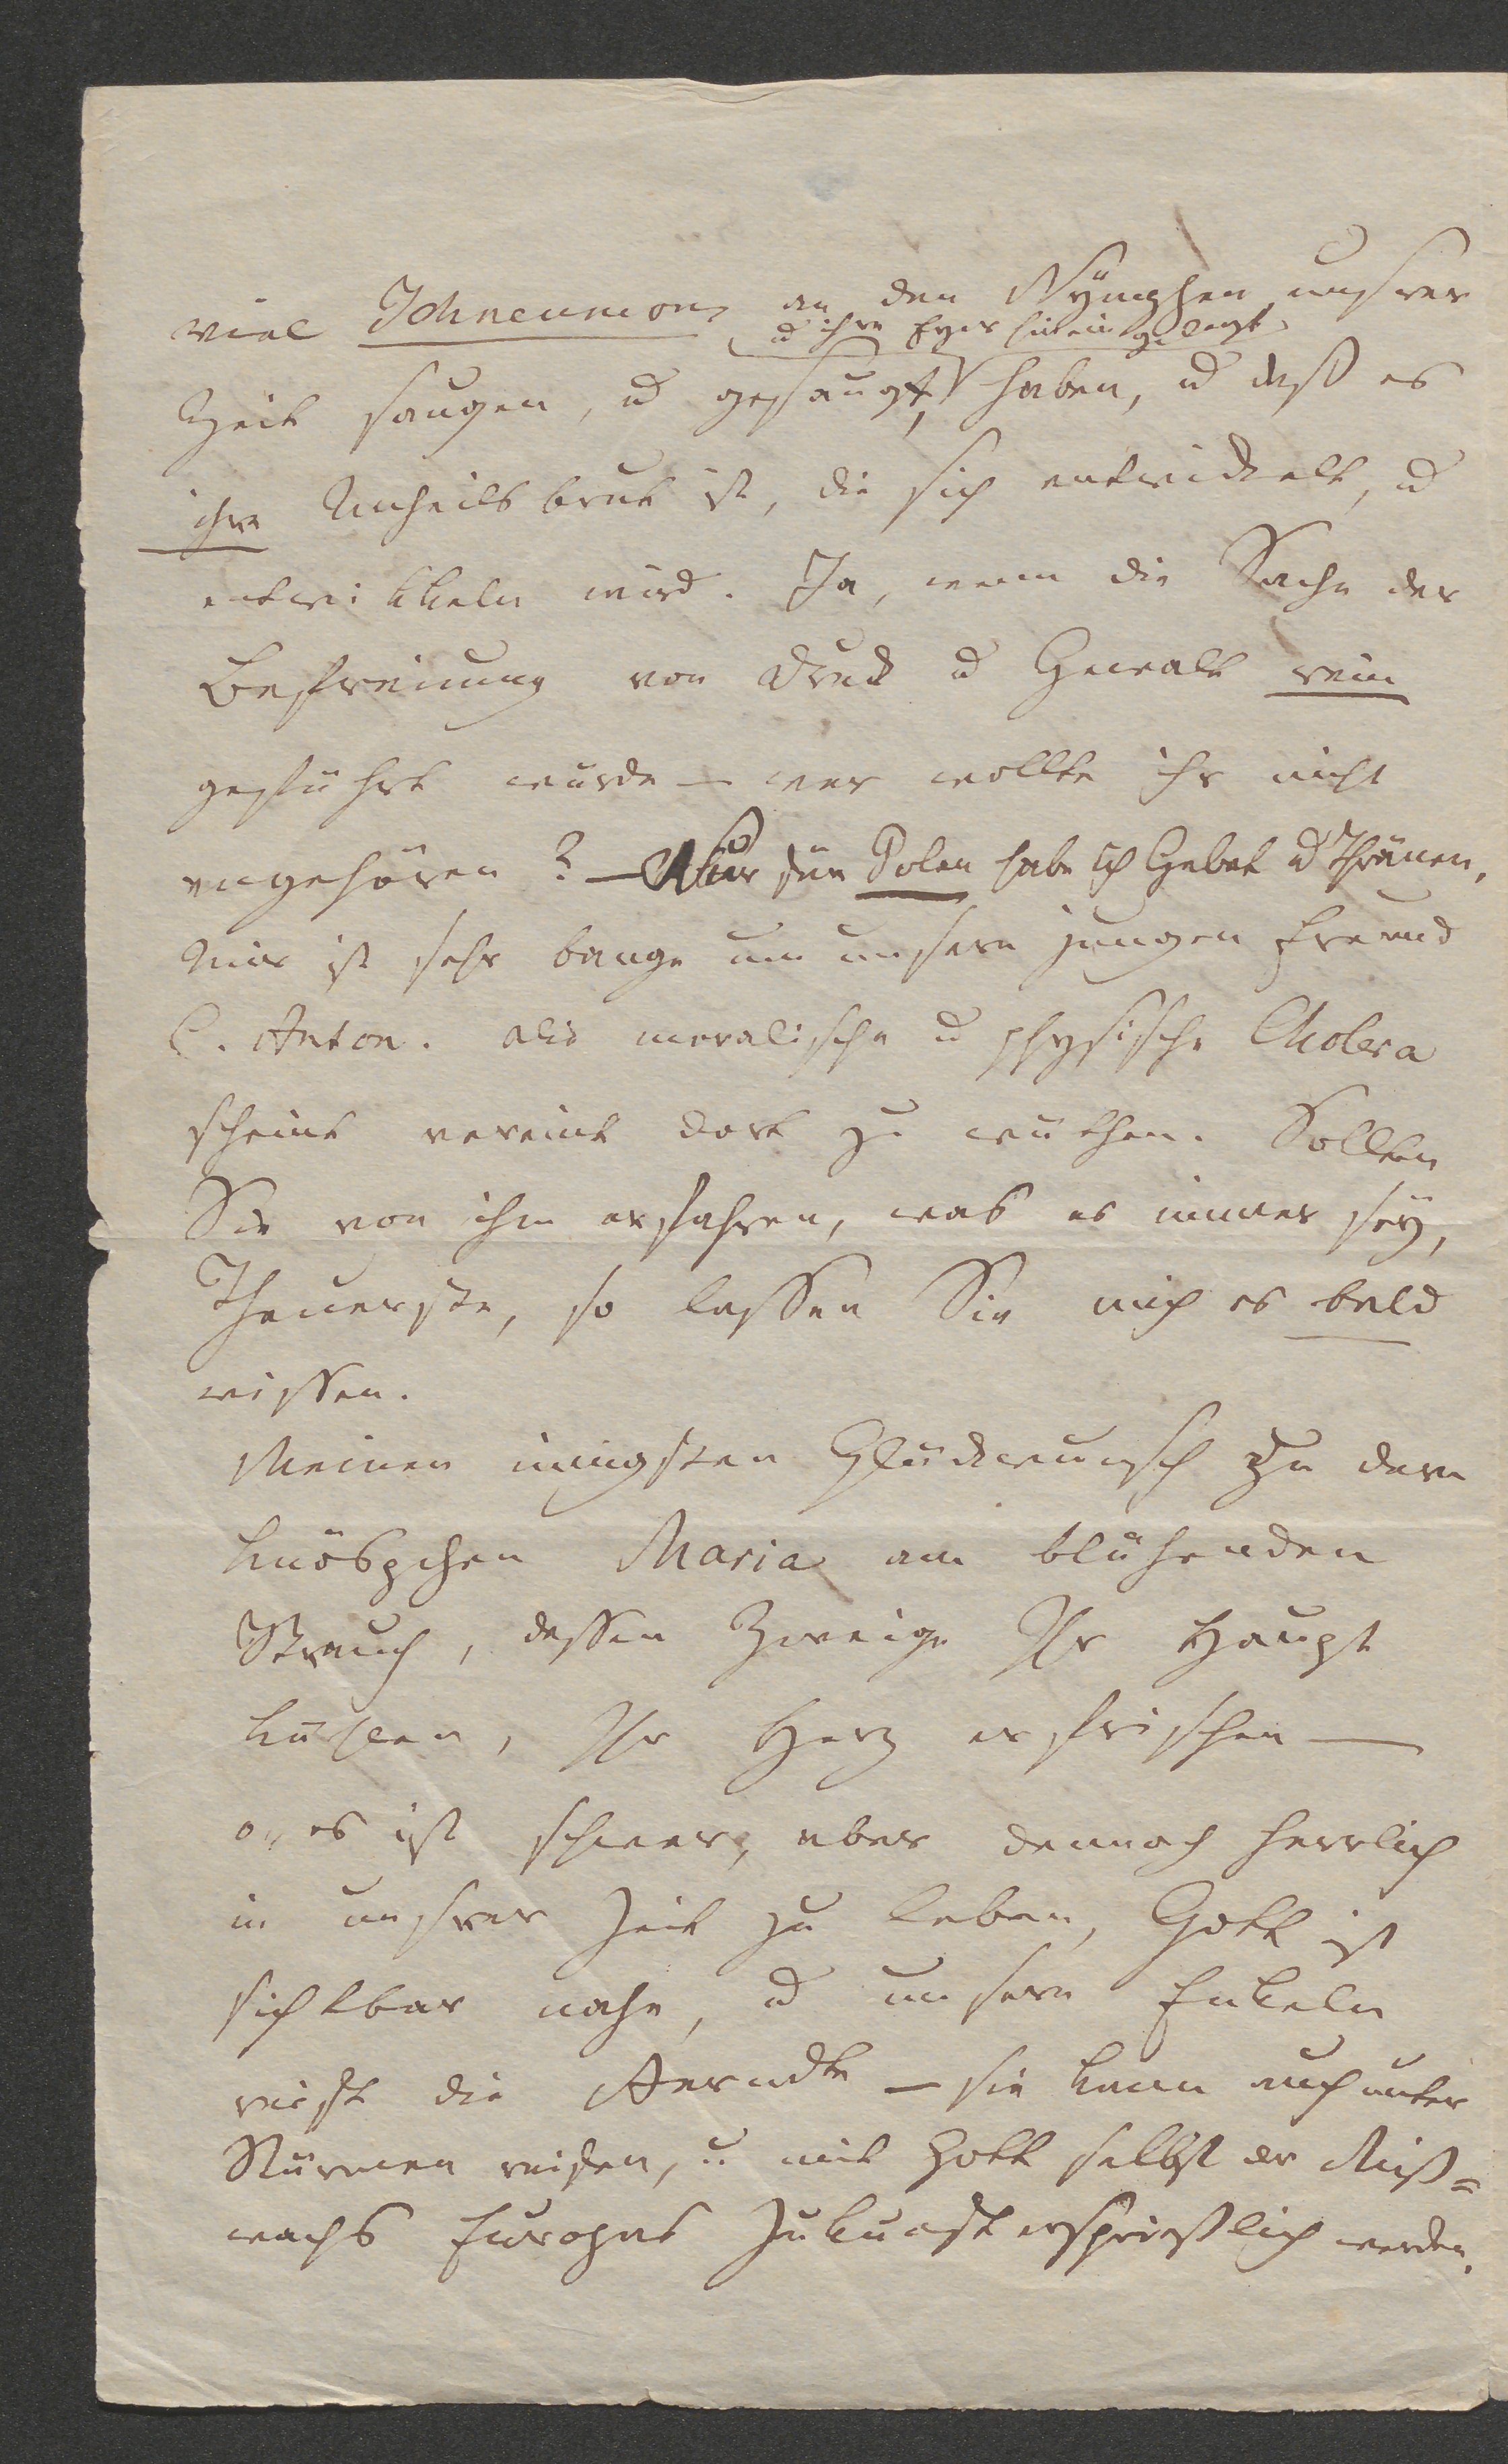 viel Ichneumons an den Nÿmphen unsrer
u ihre Eyer hinein gelegt
Zeit saugen, u gesaugt, haben, u daß es
ihre Unheilsbrut ist, die sich entwickelt, u
entwikkeln wird. Ja, wenn die Sache der
Befreiung von Druck u Gewalt rein
geführt würde – wer wollte ihr nicht
angehören? – Nur für Polen habe ich Gebet u Thränen,
Mir ist sehr bange um unsern jungen Freund
C. Anton. Die moralische u physische Cholera
scheint vereint dort zu wüthen. Sollten
Sie von ihm erfahren, was es immer seÿ,
Theuerste, so lassen Sie mich es bald
wissen.
Meinen innigsten Glückwunsch zu dem
Knöspchen Maria am blühenden
Strauch, dessen Zweige Ihr Haupt
kühlen, Ihr Herz erfrischen –
o, es ist schwer, aber dennoch herrlich
in unsrer Zeit zu leben, Gott ist
sichtbar nahe, u unsern Enkeln
reift die Aerndte – sie kann auch unter
Stürmen reifen, u mit Gott selbst der Miß=
wachs Europas Zukunft ersprießlich werden.